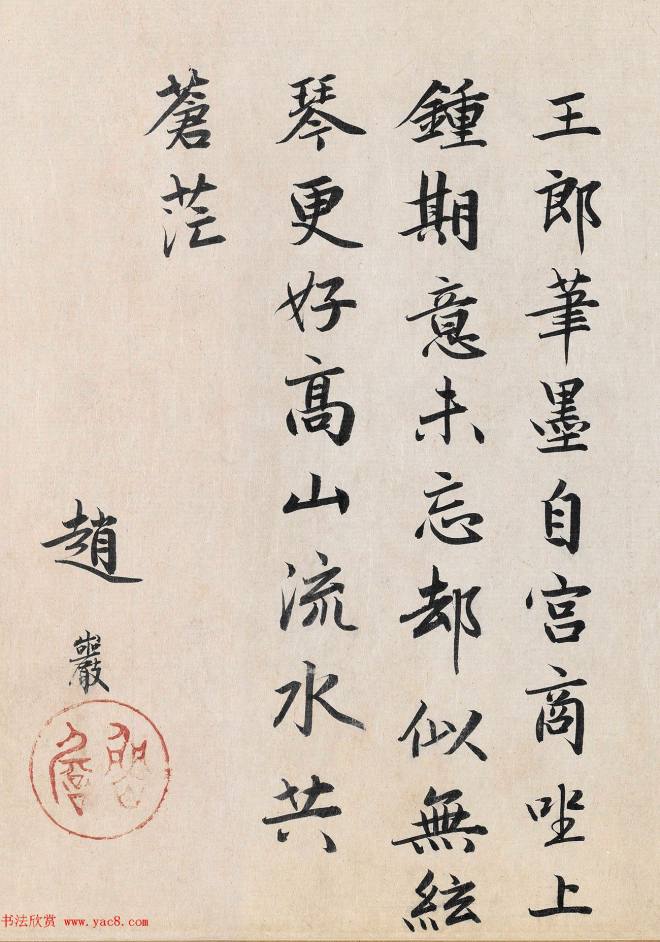 王郎筆墨自宮商㘴上
鍾期意未忘却似無絃
琴更好髙山流水共
蒼茫
趙
巖
书法欣赏 www.yac8.com